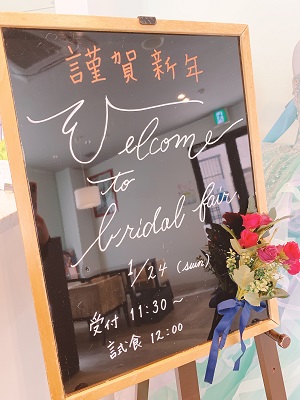 謹賀新年
Welcome
to
bridal fair
1/24 (sun)
受付 11:30～
試食 12:00